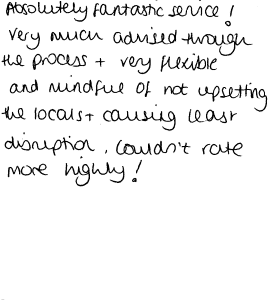 Absolutely fantastic service!
Very much advised through
the process + very flexible
and mindful of not upsetting
the locals + causing least
disruption. Couldn't rate
more highly!